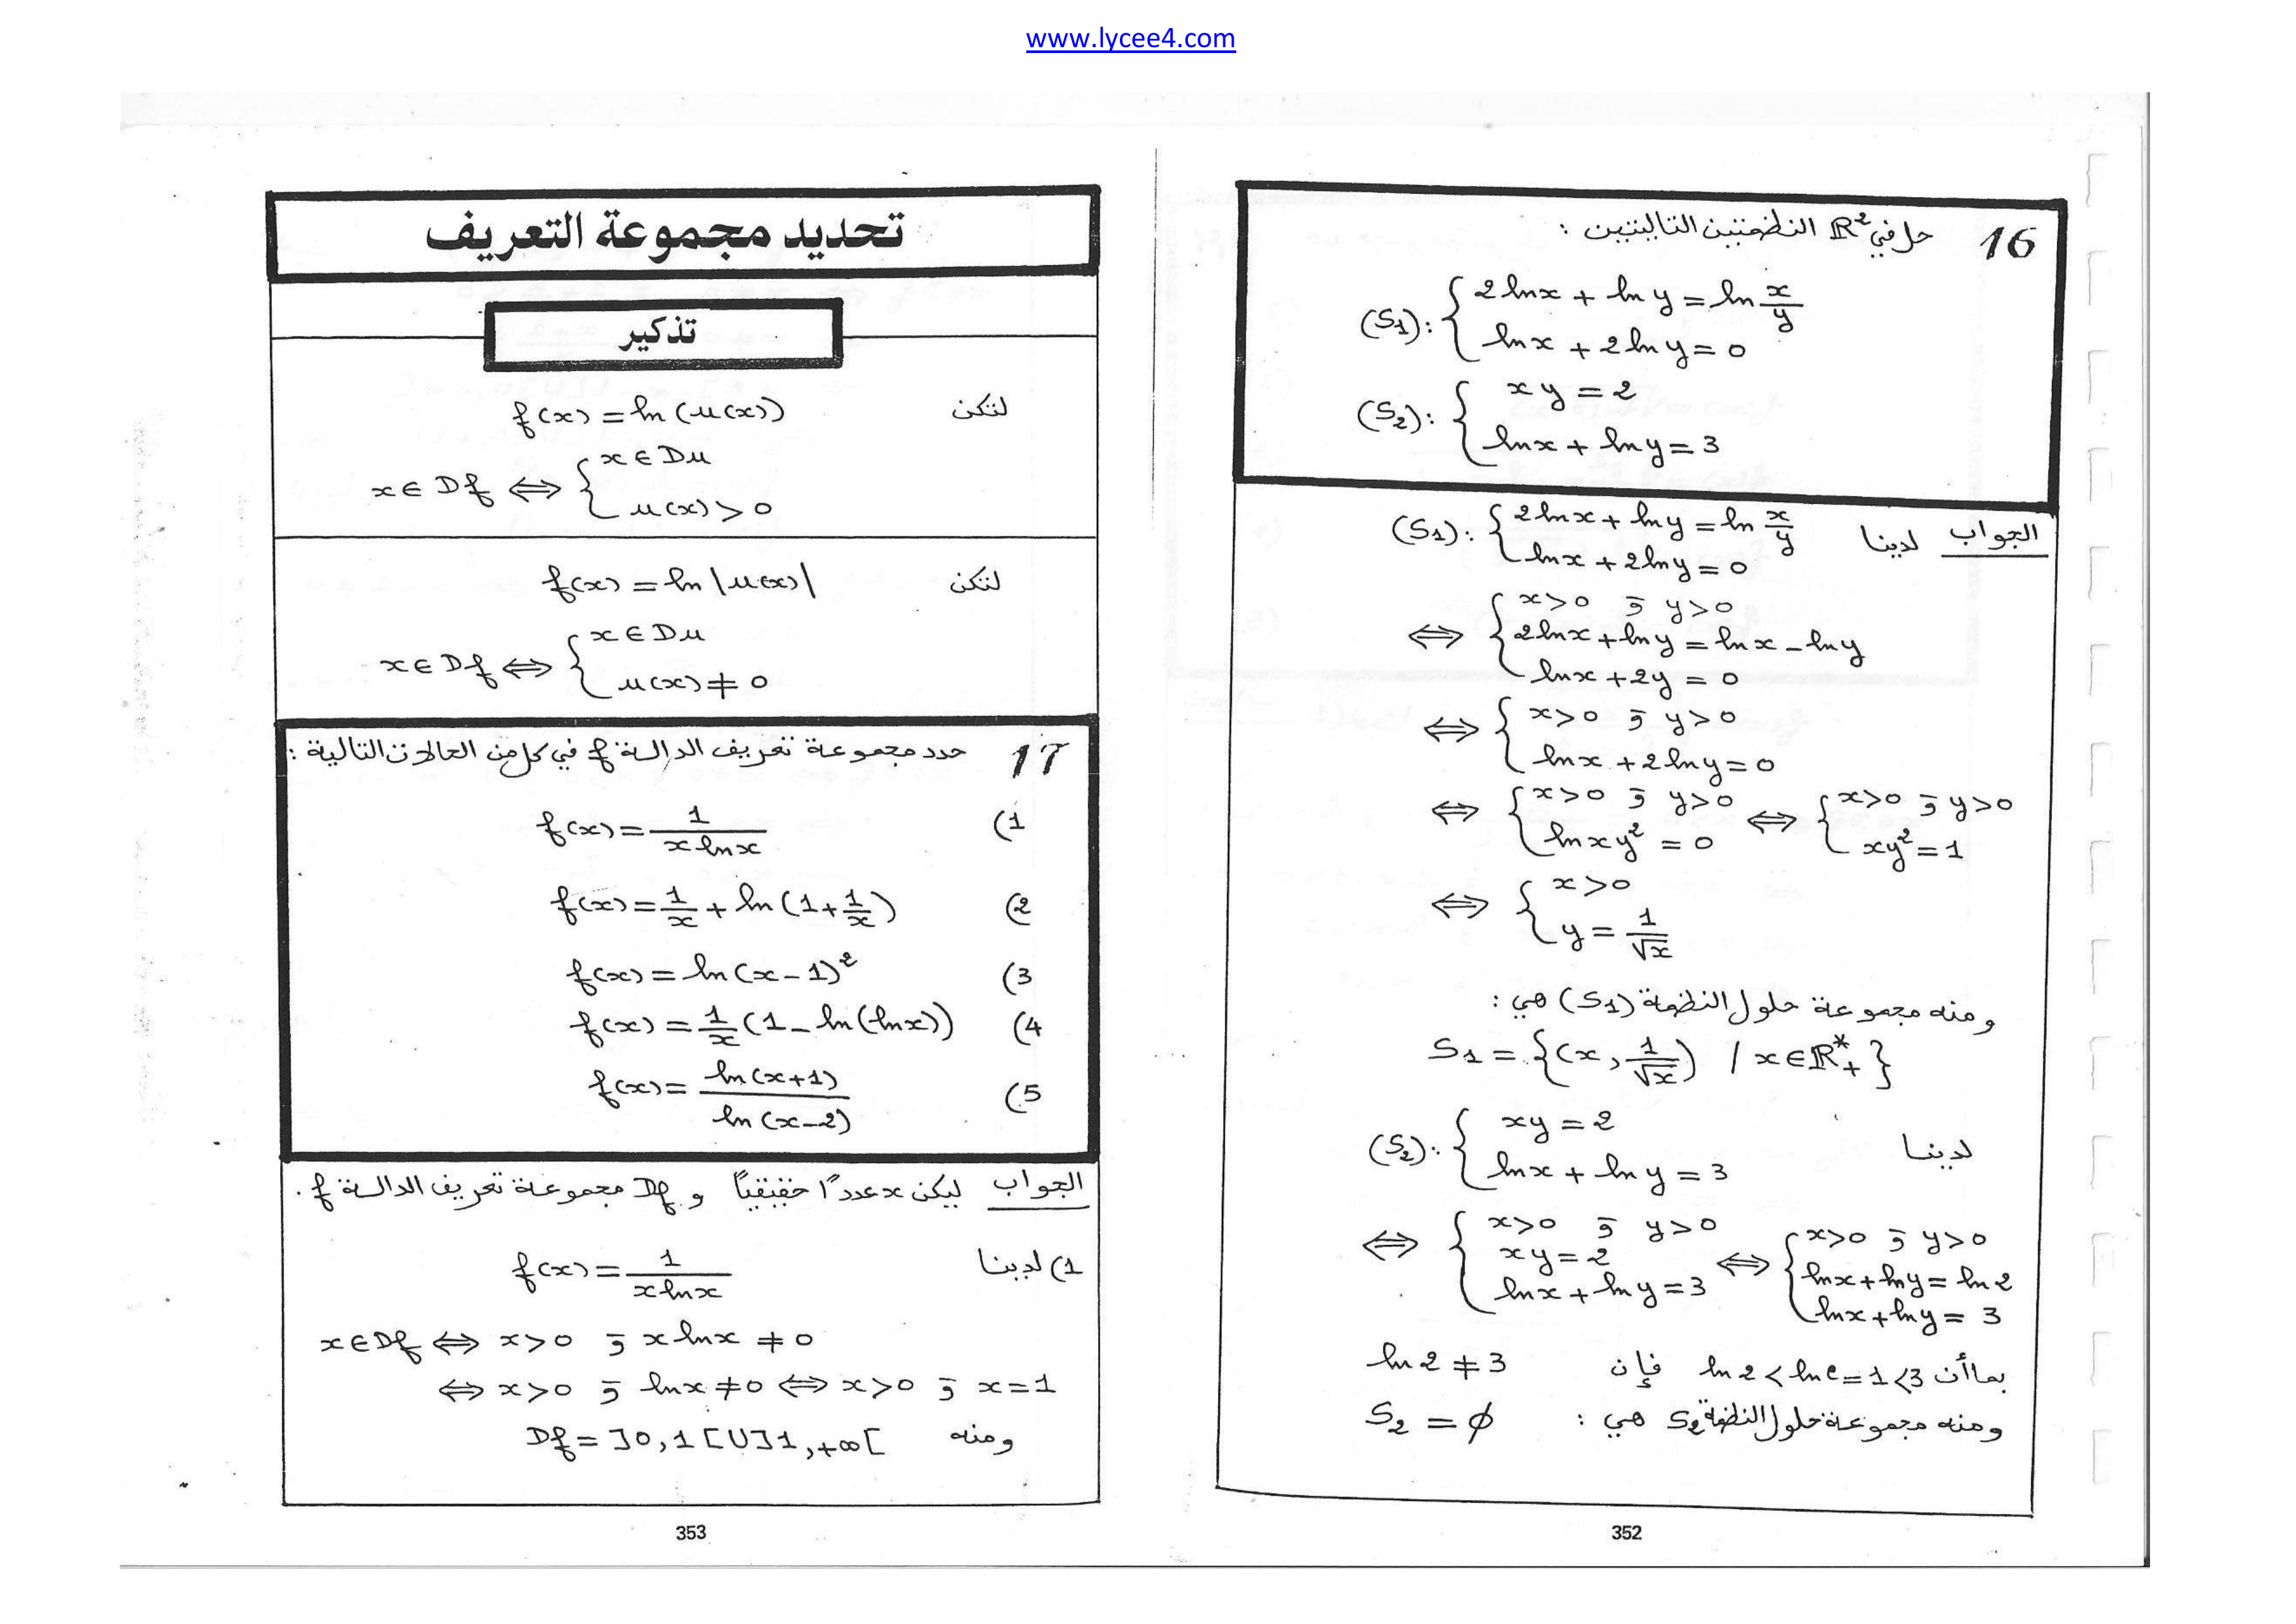 www.lycee4.com
16 حل في ℝ² النظمتين التاليتين :
(S1): { 2lnx + lny = ln x/y
lnx + 2lny = 0
(S2): { xy = 2
lnx + lny = 3
الجواب لدينا (S1): { 2lnx + lny = ln x/y
lnx + 2lny = 0
⇔ { x>0 و y>0
2lnx + lny = lnx - lny
lnx + 2y = 0
⇔ { x>0 و y>0
lnx + 2lny = 0
⇔ { x>0 و y>0 ⇔ { x>0 و y>0
lnxy² = 0 xy² = 1
⇔ { x>0
y = 1/√x
ومنه مجموعة حلول النظمة (S1) هي :
S1 = {(x, 1/√x) / x∈ℝ*+}
لدينا (S2): { xy = 2
lnx + lny = 3
⇔ { x>0 و y>0 ⇔ { x>0 و y>0
xy = 2 lnx + lny = ln2
lnx + lny = 3 lnx + lny = 3
بما أن ln2 < lne = 1 < 3 فإن ln2 ≠ 3
ومنه مجموعة حلول النظمة S2 هي : S2 = ∅
352
تحديد مجموعة التعريف
تذكير
لتكن f(x) = ln(u(x))
x∈Df ⇔ { x∈Du
u(x) > 0
لتكن f(x) = ln|u(x)|
x∈Df ⇔ { x∈Du
u(x) ≠ 0
17 حدد مجموعة تعريف الدالة f في كل من الحالات التالية :
1) f(x) = 1/(x lnx)
2) f(x) = 1/x + ln(1 + 1/x)
3) f(x) = ln(x-1)²
4) f(x) = 1/x (1 - ln(lnx))
5) f(x) = ln(x+1)/ln(x-2)
الجواب ليكن x عددا حقيقياً و Df مجموعة تعريف الدالة f.
1) لدينا f(x) = 1/(x lnx)
x∈Df ⇔ x>0 و x lnx ≠ 0
⇔ x>0 و lnx ≠ 0 ⇔ x>0 و x=1
ومنه Df = ]0,1[∪]1,+∞[
353